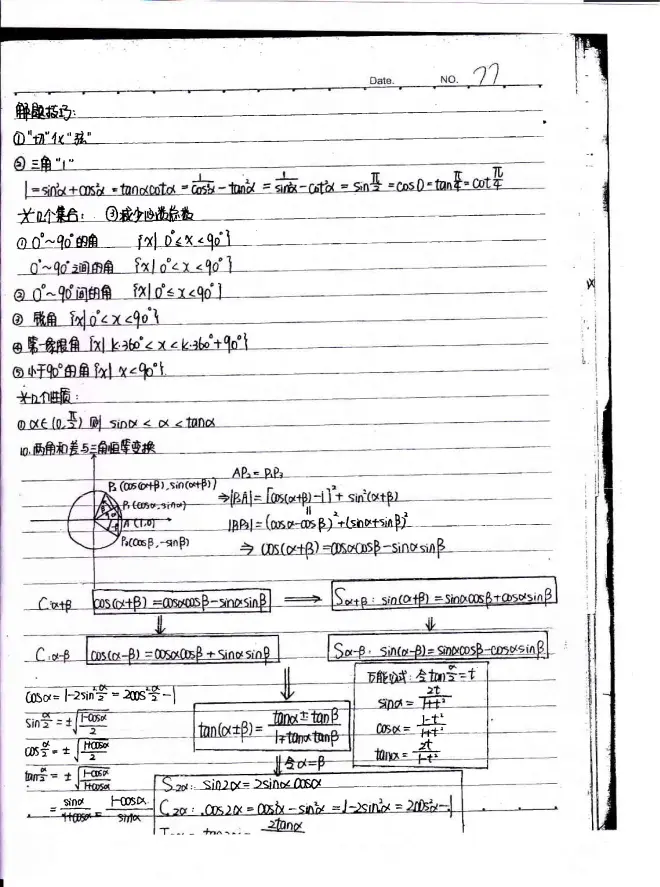 Date. NO. 77
解题技巧:
①"切"化"弦"
②三角"1"
1=sin²α+cos²α=tanαcotα=1/cos²α-tan²α=1/sin²α-cot²α=sinπ/2=cos0=tanπ/4=cotπ/4
*几个集合: ③减少函数系数
①0°~90°的角 {x|0°≤x<90°}
0°~90°之间的角 {x|0°<x<90°}
②0°~90°间的角 {x|0°≤x<90°}
③锐角 {x|0°<x<90°}
④第一象限角 {x|k·360°<x<k·360°+90°}
⑤小于90°的角{x|x<90°}
*几个性质:
①α∈(0,π/2) 则 sinα<α<tanα
10.两角和差与三角恒等变换
P₃(cos(α+β),sin(α+β))
P₁(cosα,sinα)
A(1,0)
P₂(cosβ,-sinβ)
AP₃=P₁P₂
⇒|P₃A|=[cos(α+β)-1]²+sin²(α+β)
||
=(cosα-cosβ)²+(sinα+sinβ)²
⇒cos(α+β)=cosαcosβ-sinαsinβ
Cα+β cos(α+β)=cosαcosβ-sinαsinβ ⇒ Sα+β: sin(α+β)=sinαcosβ+cosαsinβ
⇓ ⇓
Cα-β cos(α-β)=cosαcosβ+sinαsinβ Sα-β: sin(α-β)=sinαcosβ-cosαsinβ
cosα=1-2sin²α/2=2cos²α/2-1
sinα/2=±√((1-cosα)/2)
cosα/2=±√((1+cosα)/2)
tanα/2=±√((1-cosα)/(1+cosα))
=sinα/(1+cosα)=(1-cosα)/sinα
⇓
tan(α±β)=(tanα±tanβ)/(1∓tanαtanβ)
⇓令α=β
万能公式:令tanα/2=t
sinα=2t/(1+t²)
cosα=(1-t²)/(1+t²)
tanα=2t/(1-t²)
S2α: sin2α=2sinαcosα
C2α: cos2α=cos²α-sin²α=1-2sin²α=2cos²α-1
2tanα